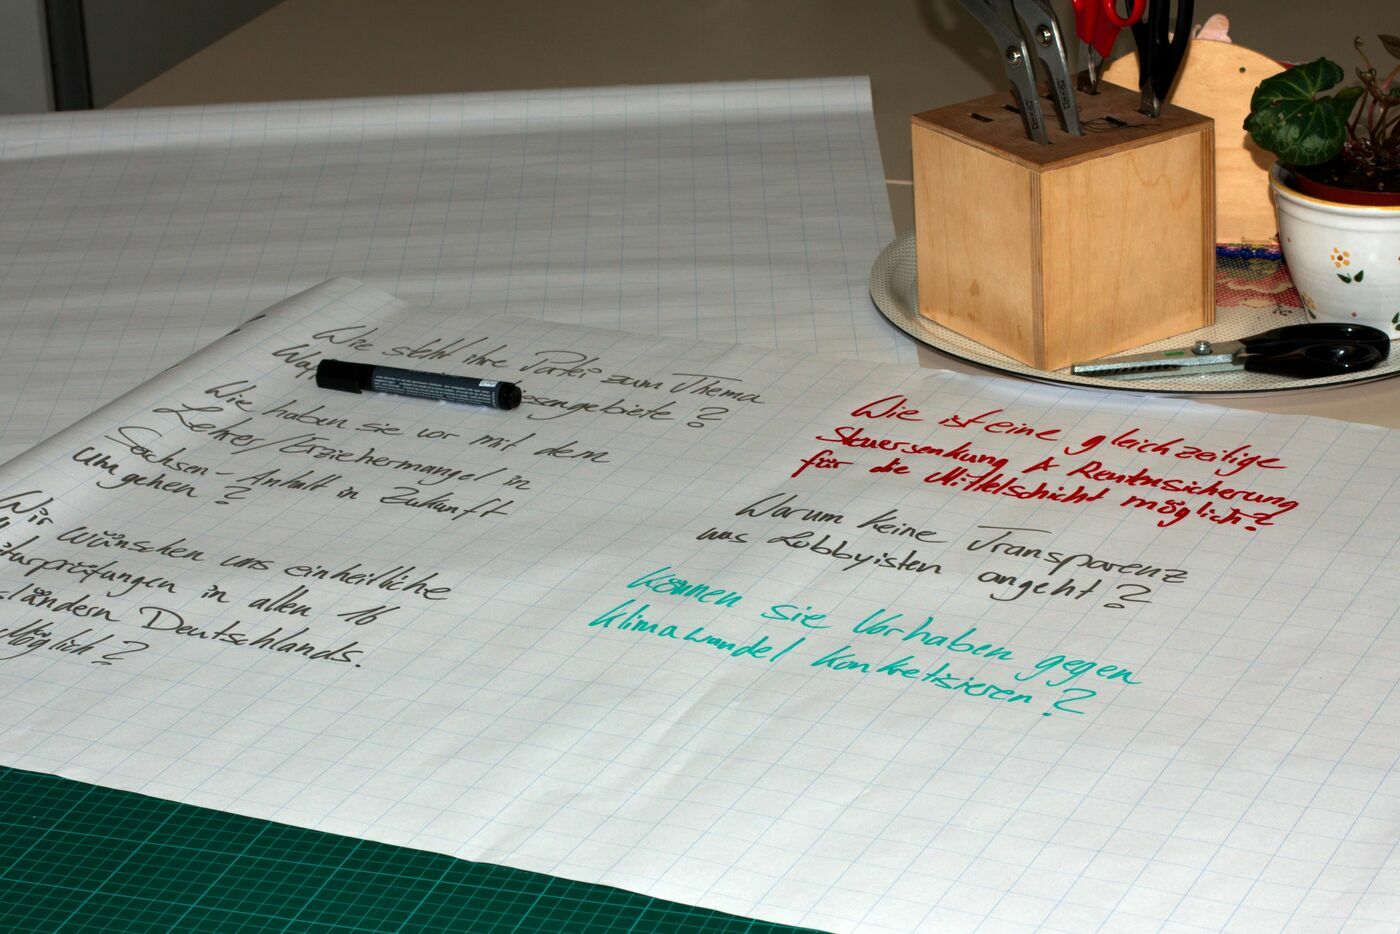 Wie steht ihre Partei zum Thema
Wa
sengebiete?
Wie haben sie vor mit dem
Lehrer/Erziehermangel in
Sachsen-Anhalt in Zukunft
umgehen?
Wir wünschen uns einheitliche
turprüfungen in allen 16
sländern Deutschlands.
Möglich?
Wie ist eine gleichzeitige
Steuersenkung & Rentensicherung
für die Mittelschicht möglich?
Warum keine Transparenz
was Lobbyisten angeht?
Können sie Vorhaben gegen
Klimawandel konkretisieren?